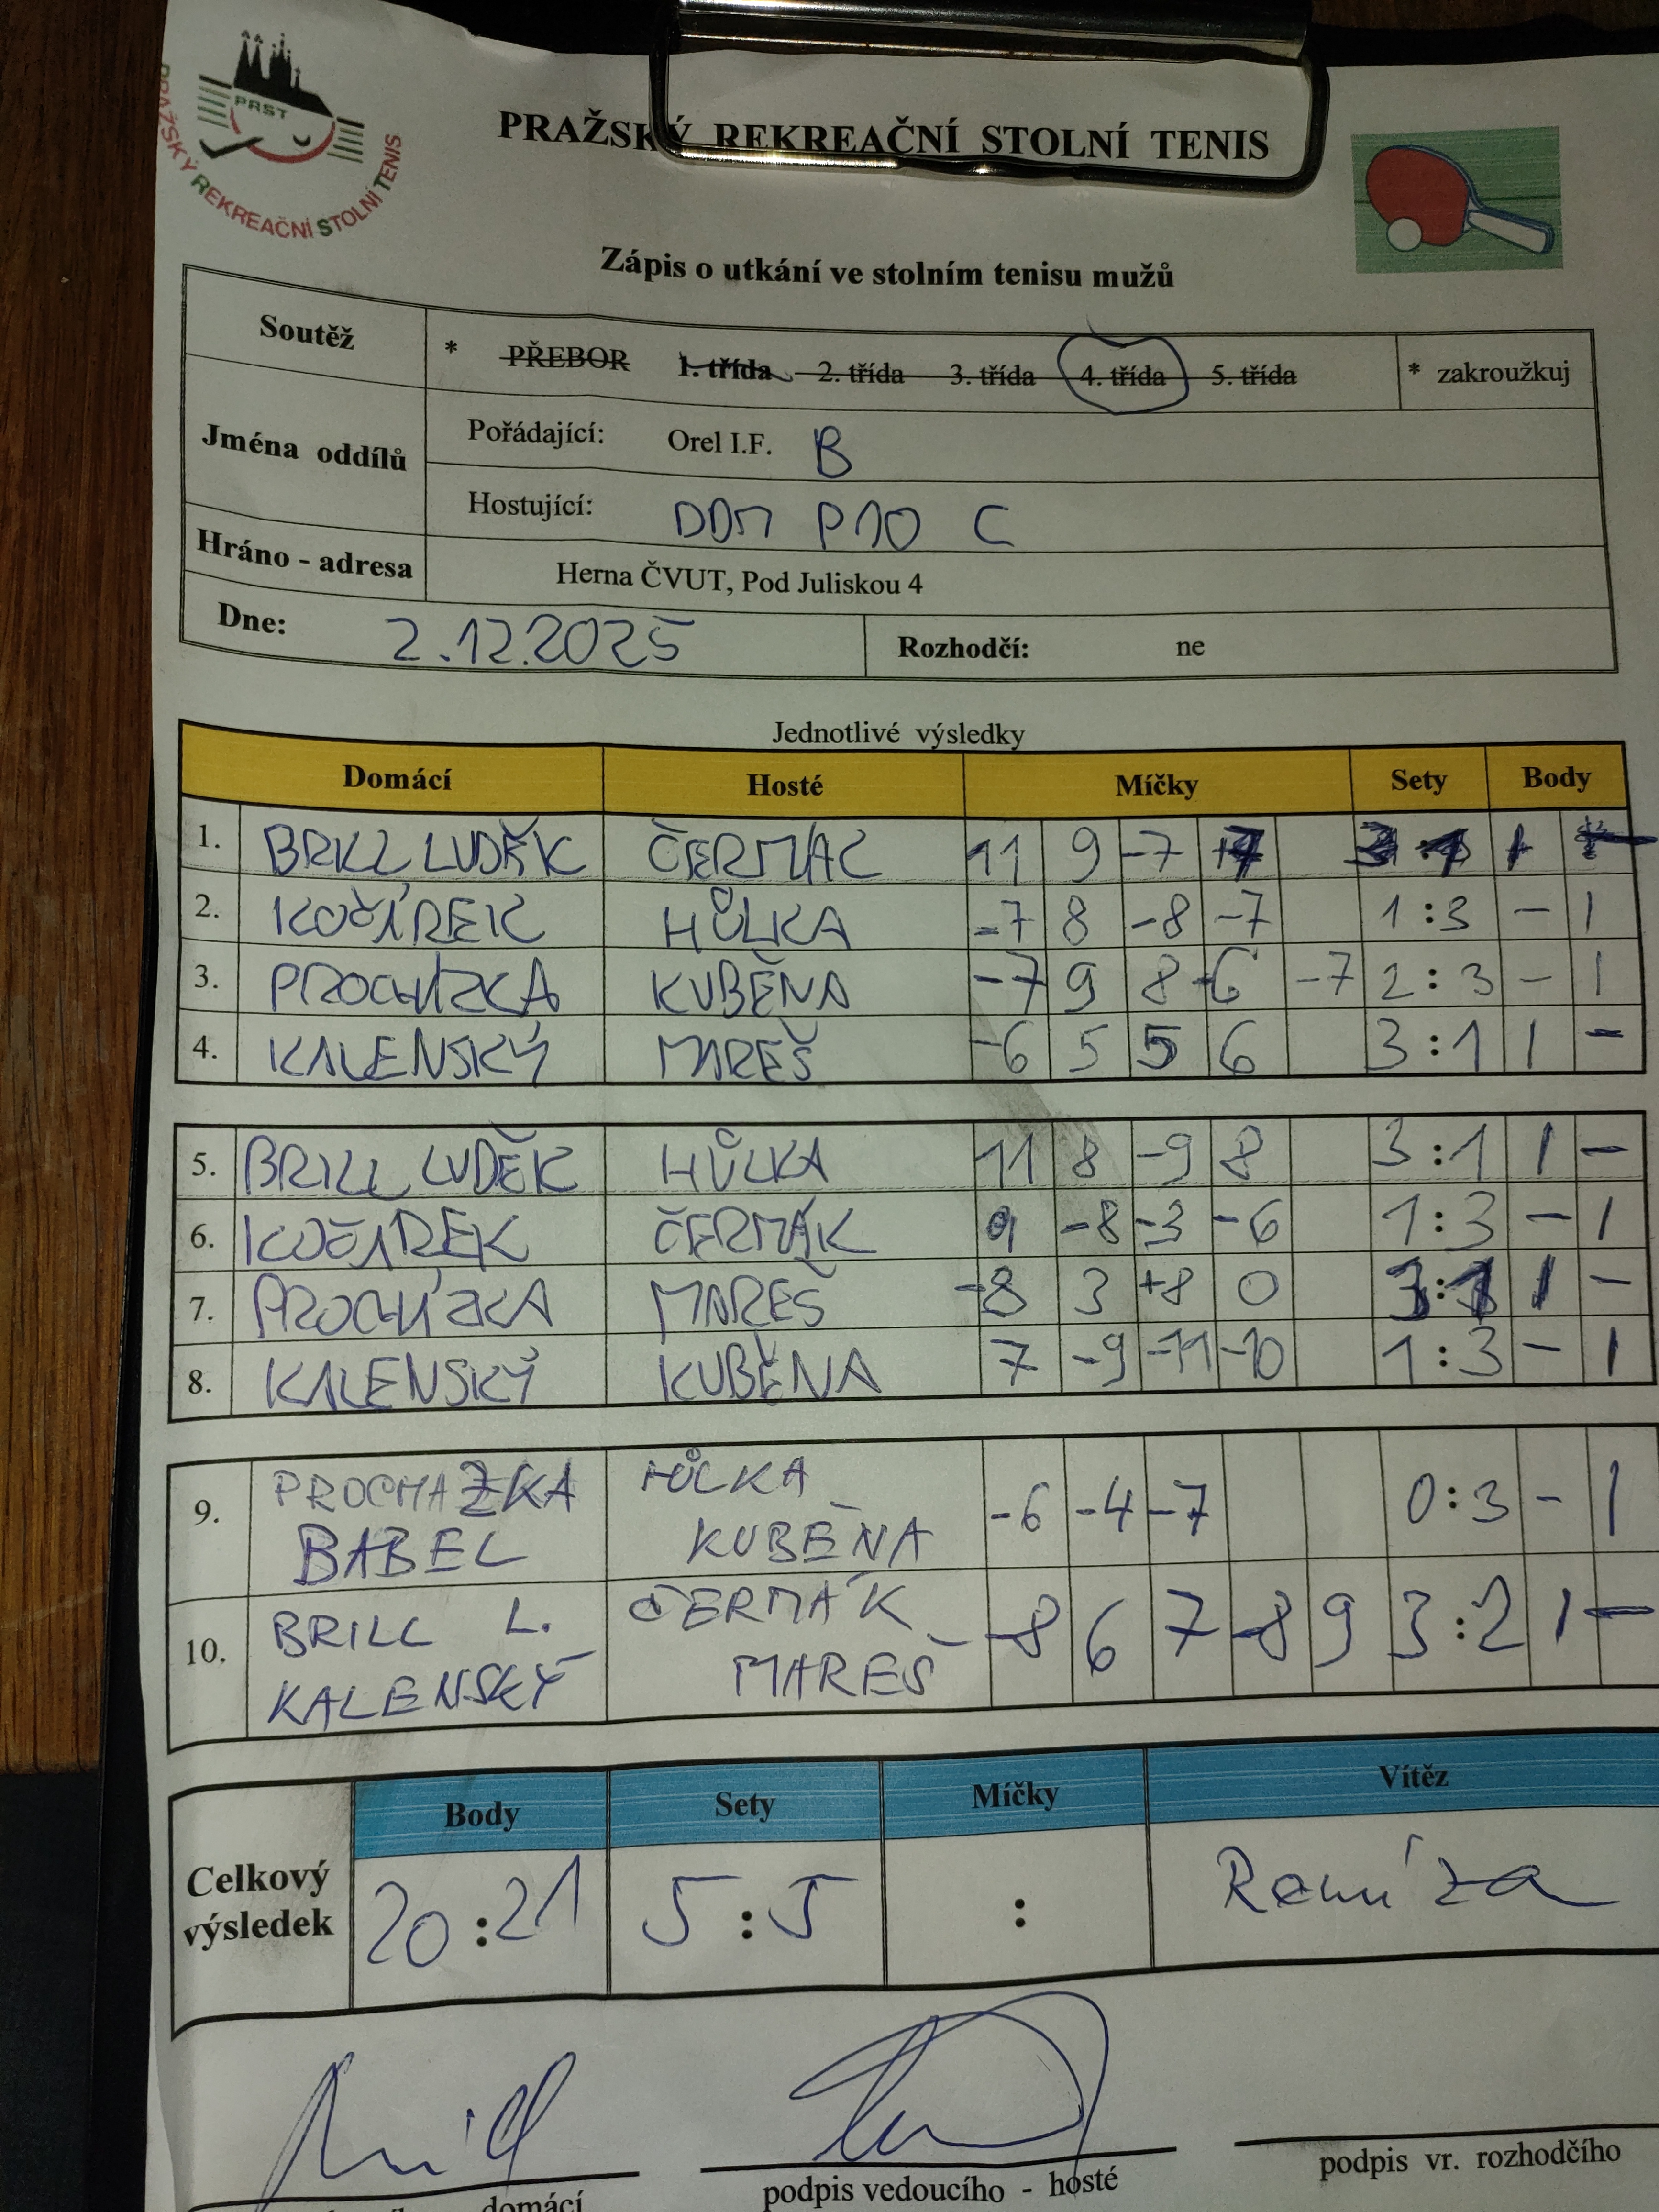 PRST
PRAŽSKÝ REKREAČNÍ STOLNÍ TENIS
PRAŽSKÝ REKREAČNÍ STOLNÍ TENIS
Zápis o utkání ve stolním tenisu mužů
Soutěž * PŘEBOR 1. třída 2. třída 3. třída 4. třída 5. třída * zakroužkuj
Jména oddílů
Pořádající: Orel I.F. B
Hostující: DDM P10 C
Hráno - adresa Herna ČVUT, Pod Juliskou 4
Dne: 2.12.2025 Rozhodčí: ne
Jednotlivé výsledky
Domácí Hosté Míčky Sety Body
1. BRILL LUDĚK ČERMÁC 11 9 -7
2. KOČÍREK HŮLKA -7 8 -8 -7 1:3 - 1
3. PROCHÁZKA KUBĚNA -7 9 8 -6 -7 2:3 - 1
4. KALENSKÝ MAREŠ -6 5 5 6 3:1 1 -
5. BRILL LUDĚK HŮLKA 11 8 -9 8 3:1 1 -
6. KOČÍREK ČERMÁK 9 -8 -3 -6 1:3 - 1
7. PROCHÁZKA MAREŠ -8 3 +8 0 3:1 1 -
8. KALENSKÝ KUBĚNA 7 -9 -11 -10 1:3 - 1
9. PROCHAZKA HŮLKA -6 -4 -7 0:3 - 1
BABEL KUBĚNA
10. BRILL L. ČERMÁK -8 6 7 -8 9 3:2 1 -
KALENSKÝ MAREŠ
Body Sety Míčky Vítěz
Celkový výsledek 20:21 5:5 : Remíza
domácí podpis vedoucího - hosté podpis vr. rozhodčího